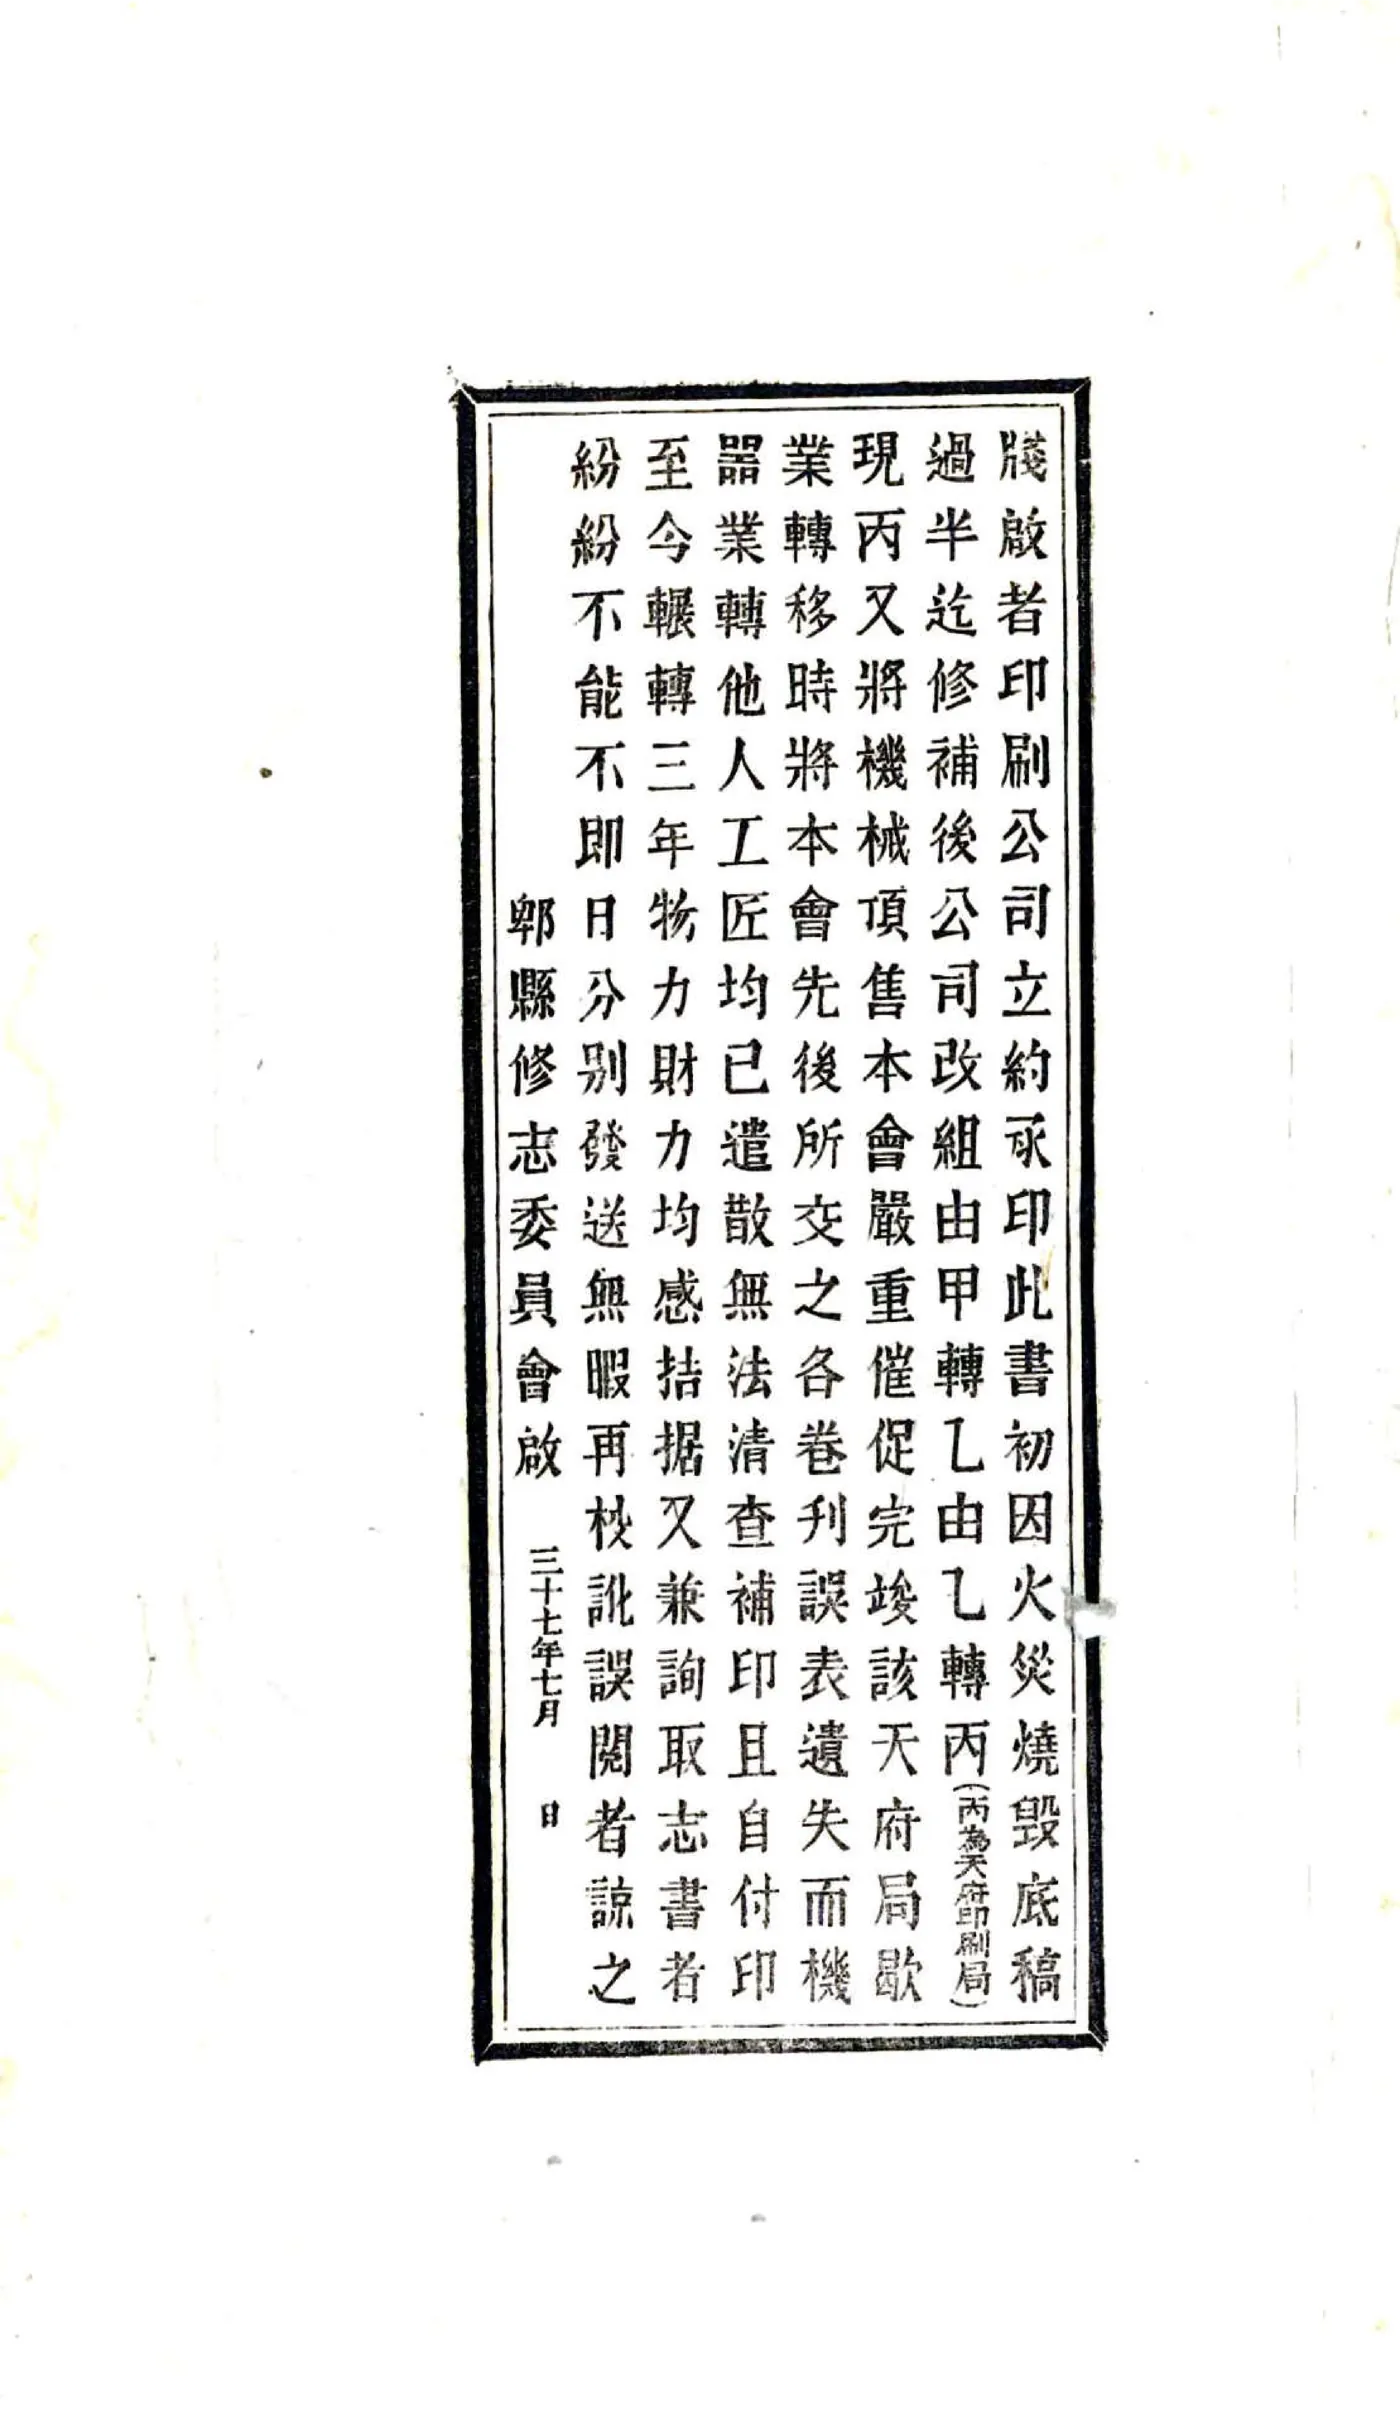 牋啟者印刷公司立約承印此書初因火災燒毀底稿
過半迄修補後公司改組由甲轉乙由乙轉丙(丙為天府印刷局)
現丙又將機械頂售本會嚴重催促完竣該天府局歇
業轉移時將本會先後所交之各卷刋誤表遺失而機
器業轉他人工匠均已遣散無法清查補印且自付印
至今輾轉三年物力財力均感拮据又兼詢取志書者
紛紛不能不即日分别發送無暇再校訛誤閱者諒之
郫縣修志委員會啟 三十七年七月 日